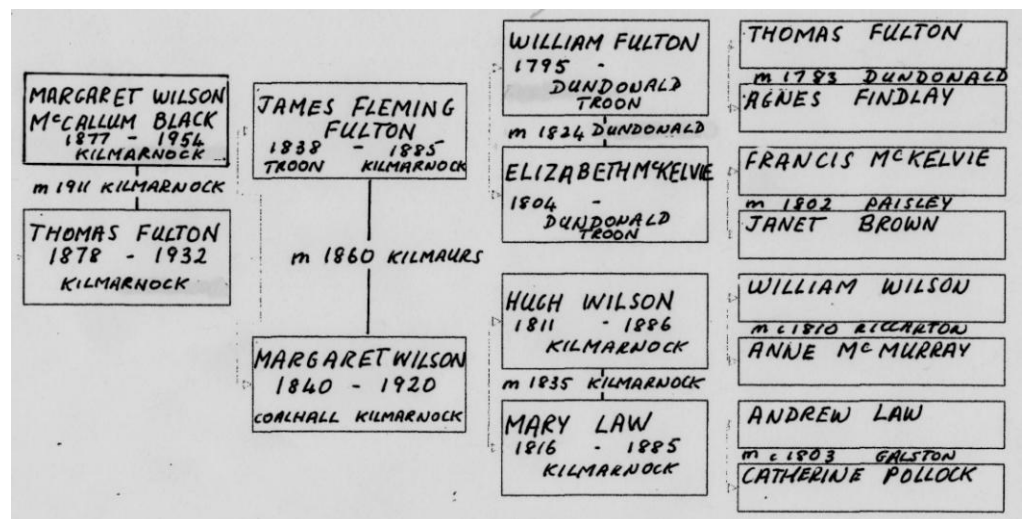 MARGARET WILSON
McCALLUM BLACK
1877 - 1954
KILMARNOCK
m 1911 KILMARNOCK
THOMAS FULTON
1878 - 1932
KILMARNOCK
JAMES FLEMING
FULTON
1838 - 1885
TROON KILMARNOCK
m 1860 KILMAURS
MARGARET WILSON
1840 - 1920
COALHALL KILMARNOCK
WILLIAM FULTON
1795 -
DUNDONALD
TROON
m 1824 DUNDONALD
ELIZABETH McKELVIE
1804 -
DUNDONALD
TROON
HUGH WILSON
1811 - 1886
KILMARNOCK
m 1835 KILMARNOCK
MARY LAW
1816 - 1885
KILMARNOCK
THOMAS FULTON
m 1783 DUNDONALD
AGNES FINDLAY
FRANCIS McKELVIE
m 1802 PAISLEY
JANET BROWN
WILLIAM WILSON
m c 1810 RICCARTON
ANNE McMURRAY
ANDREW LAW
m c 1803 GALSTON
CATHERINE POLLOCK